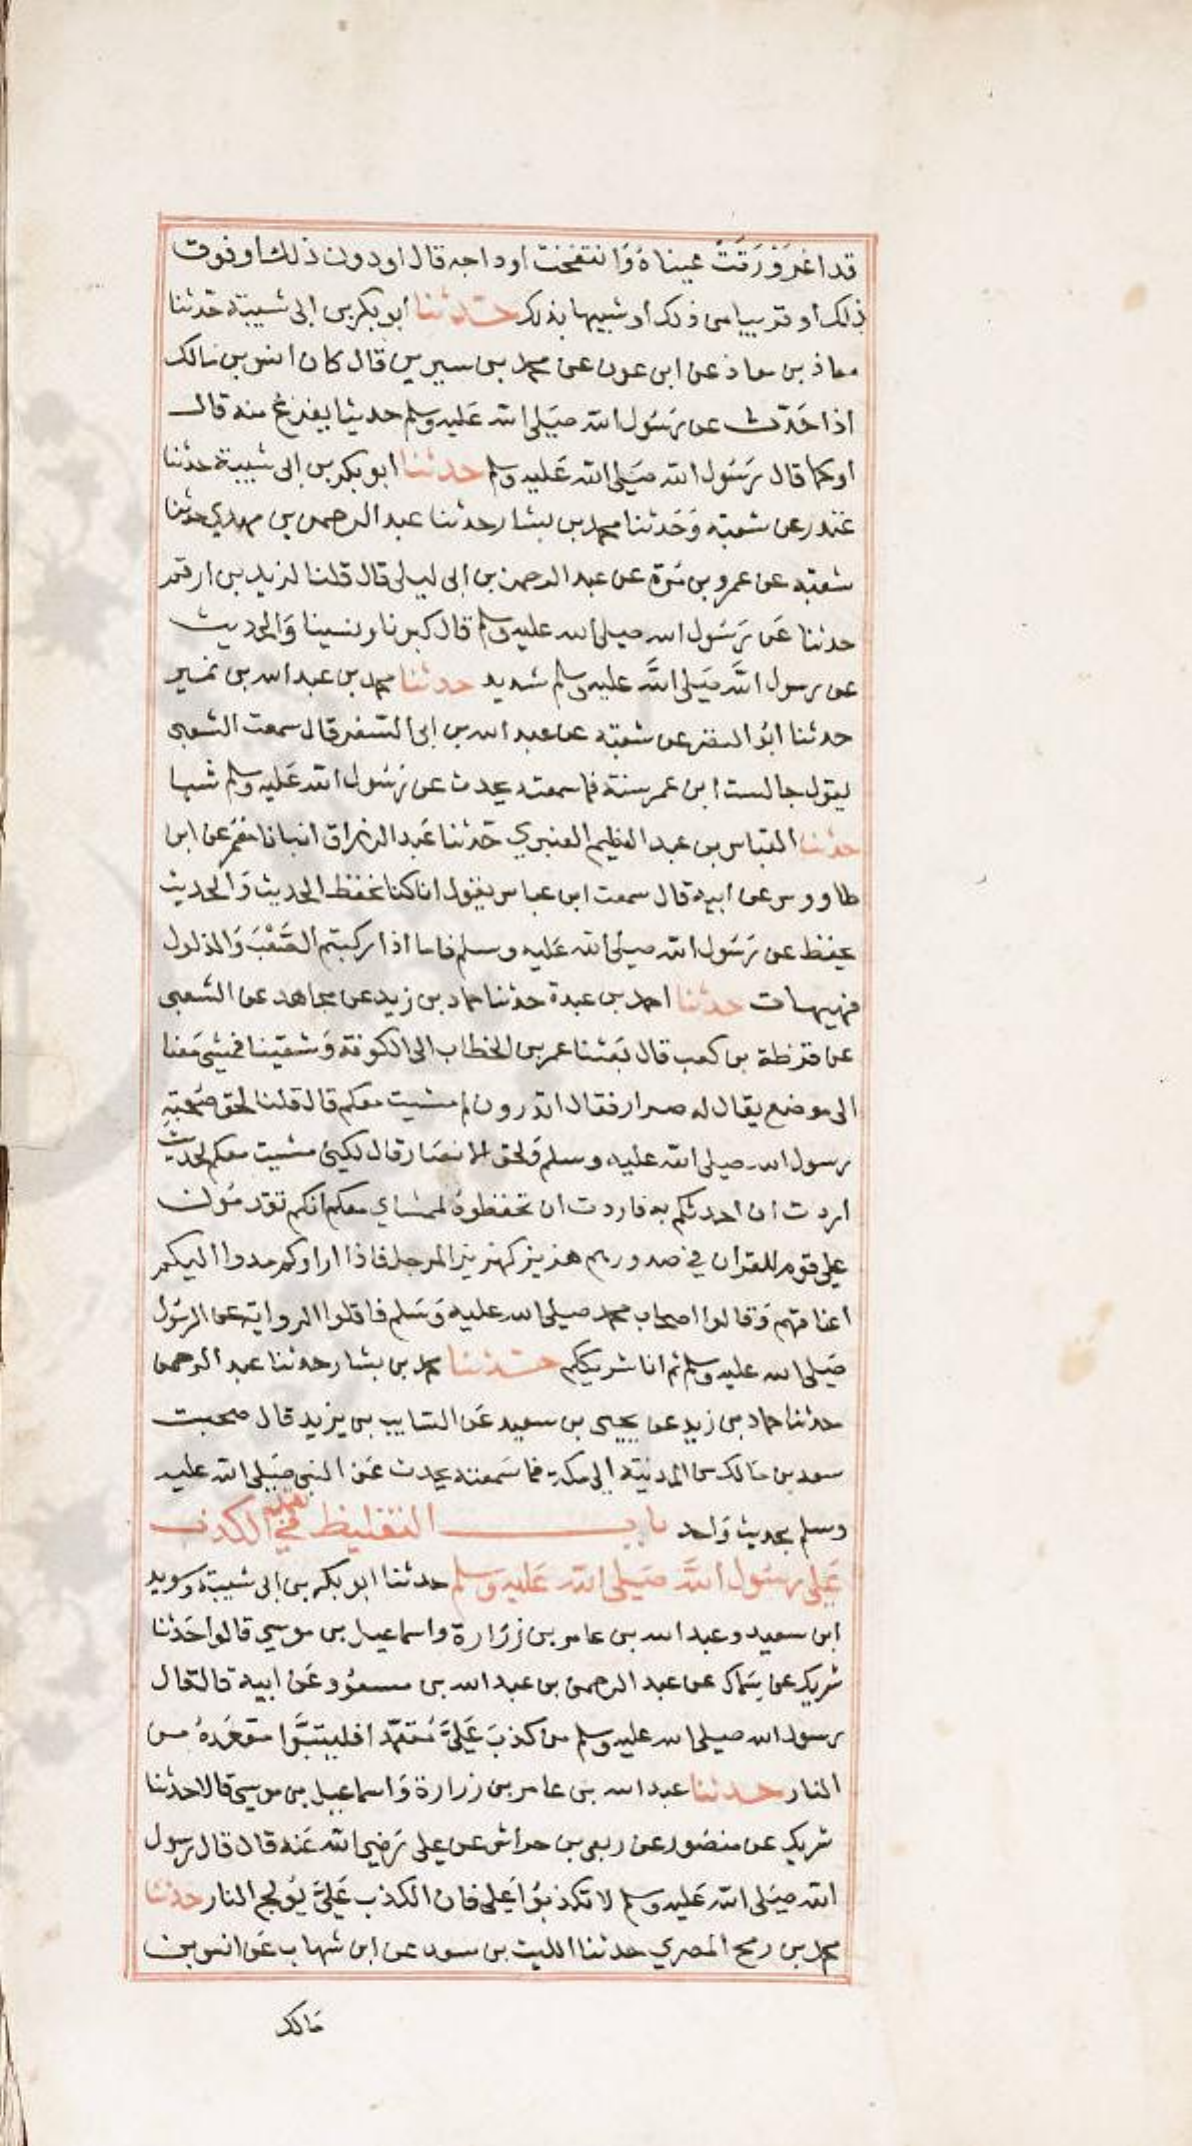 قد اغرَوْرَقَتْ عيناهُ وَانتفخت اوداجه قال اودون ذلك اوفوق
ذلك او قريبا من ذلك او شبيها بذلك حدثنا ابو بكر بن ابى شيبة حدثنا
معاذ بن معاذ عن ابن عون عن محمد بن سيرين قال كان انس بن مالك
اذا حَدّث عن رَسُول الله صَلى الله عَليه وسلم حديثا يفزع منه قال
اوكما قال رَسُول الله صَلى الله عَليه وسلم حدثنا ابو بكر بن ابى شيبة حدثنا
غندر عن شعبة وَحَدثنا محمد بن بشار حدثنا عبد الرحمن بن مهدي حدثنا
شعبة عن عمرو بن مُرة عن عبد الرحمن بن ابى ليلى قال قلنا لزيد بن ارقم
حدثنا عَن رَسُول الله صلى الله عليه وسلم قال كبرنا ونسينا وَالحديث
عن رسول اللَّه صَلى اللَّه عليه وسلم شديد حدثنا محمد بن عبد الله بن نمير
حدثنا ابُو النضر عن شعبة عن عبد الله بن ابى السَّفر قال سمعت الشعبى
يقول جالست ابن عمر سنة فما سمعته يحدث عن رَسُول الله عَليه وسلم شيا
حدثنا العَباس بن عبد العظيم العنبري حَدثنا عَبد الرزاق انبانا معمَر عن ابن
طاووس عن ابيه قال سمعت ابن عباس يقول انا كنا نحفظ الحديث وَالحديث
يحفظ عن رَسُول الله صلى الله عَليه وسلم فاما اذا ركبتم الصَّعْبَ وَالذلول
فهيهات حدثنا احمد بن عبدة حدثنا حماد بن زيد عن مجاهد عن الشعبى
عن قرظة بن كعب قال بَعثنا عمر بن الخطاب الى الكوفة وَشيَّعنا فمشى مَعنا
الى موضع يقال له صرار فقال اتدرون لم مشيت معكم قال قلنا لحق صُحبَةِ
رسول الله صلى الله عليه وسلم وَلحق الانصَار قال لكنى مشيت معكم لحديث
اردت ان احدثكم به فاردت ان تحفظوهُ لممشاي معكم انكم تقدمُون
على قوم للقران في صدورهم هزيز كهزيز المرجل فاذا اراوكم مدوا اليكم
اعناقهم وَقالوا اصحاب محمد صلى الله عليه وَسَلم فاقلوا الرواية عن الرسُول
صَلى الله عليه وسلم ثم انا شريككم حدثنا محمد بن بشار حدثنا عبد الرحمن
حدثنا حماد بن زيد عن يحيى بن سعيد عَن السَايب بن يزيد قال صحبت
سعد بن مالك من المدينة الى مكة فما سَمعته يحدث عَن النبى صَلى الله عليه
وسلم بحديث وَاحد باب التغليظ في تعمد الكذب
عَلى رسُول اللَّه صَلى الله عَليه وَسَلم حدثنا ابو بكر بن ابى شيبة وسويد
ابن سعيد وعبد الله بن عامر بن زرَارة واسماعيل بن موسى قالوا حَدثنا
شريك عن سَماك عن عبد الرحمن بن عبد الله بن مسعوُد عَن ابيه قال قال
رسول الله صلى الله عليه وسلم من كذبَ عَليَّ مُتعمّدا فليتبَوَّا مقعَدهُ من
النار حدثنا عبد الله بن عامر بن زرارة وَاسماعيل بن موسى قالا حدثنا
شريك عن منصُور عن ربعى بن حراش عن على رَضى الله عَنه قال قال رسول
الله صَلى الله عَليه وسلم لا تكذبوُا عَلى فان الكذب عَليَّ يُولج النار حدثنا
محمد بن رمح المصري حدثنا الليث بن سعد عن ابن شهاب عَن انس بن
مَالك